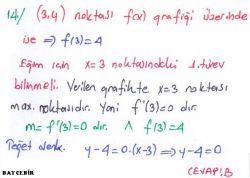 14/ (3,4) noktası f(x) grafiği üzerinde
ise ⇒ f(3)=4
Eğim için x=3 noktasındaki 1.türev
bilinmeli. Verilen grafikte x=3 noktası
max. noktasıdır. Yani f'(3)=0 dır.
m= f'(3)=0 dır. ∧ f(3)=4
Teğet denk. y-4=0.(x-3) ⇒ y-4=0
CEVAP:B
BAYCEBİR